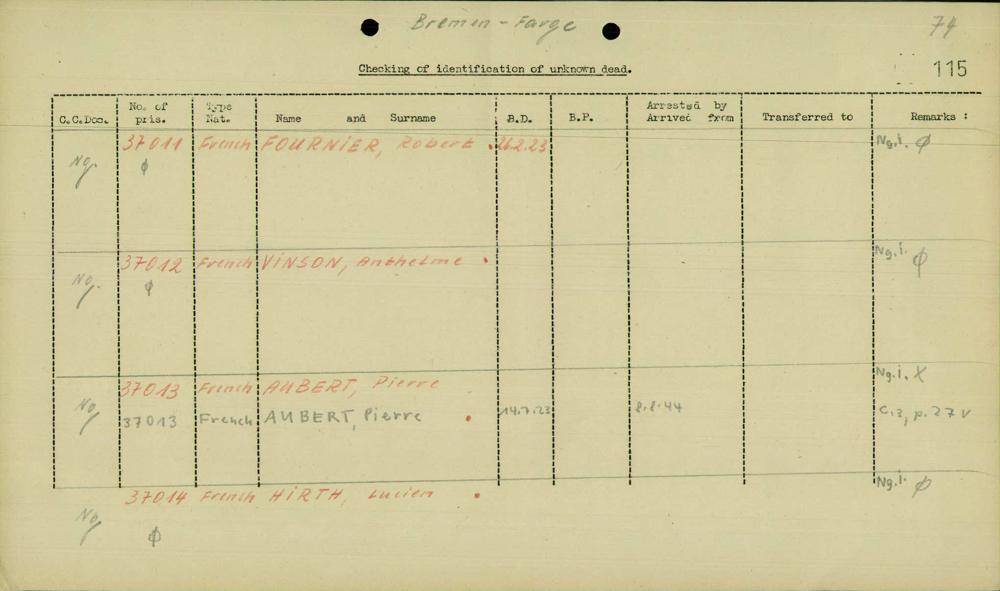 Bremen - Farge
74
115
Checking of identification of unknown dead.
C.C.Doc. No. of pris. Type Nat. Name and Surname B.D. B.P. Arrested by Arrived from Transferred to Remarks :
37011 French FOURNIER, Robert . 26.2.23 Ng.i. ϕ
Ng. ϕ
37012 French VINSON, Anthelme . Ng.i. ϕ
Ng. ϕ
37013 French AUBERT, Pierre Ng.i. X
Ng 37013 French AUBERT, Pierre . 14.7.23 8.8.44 C.3, p. 27 v
37014 French HIRTH, Lucien . Ng.i. ϕ
Ng ϕ